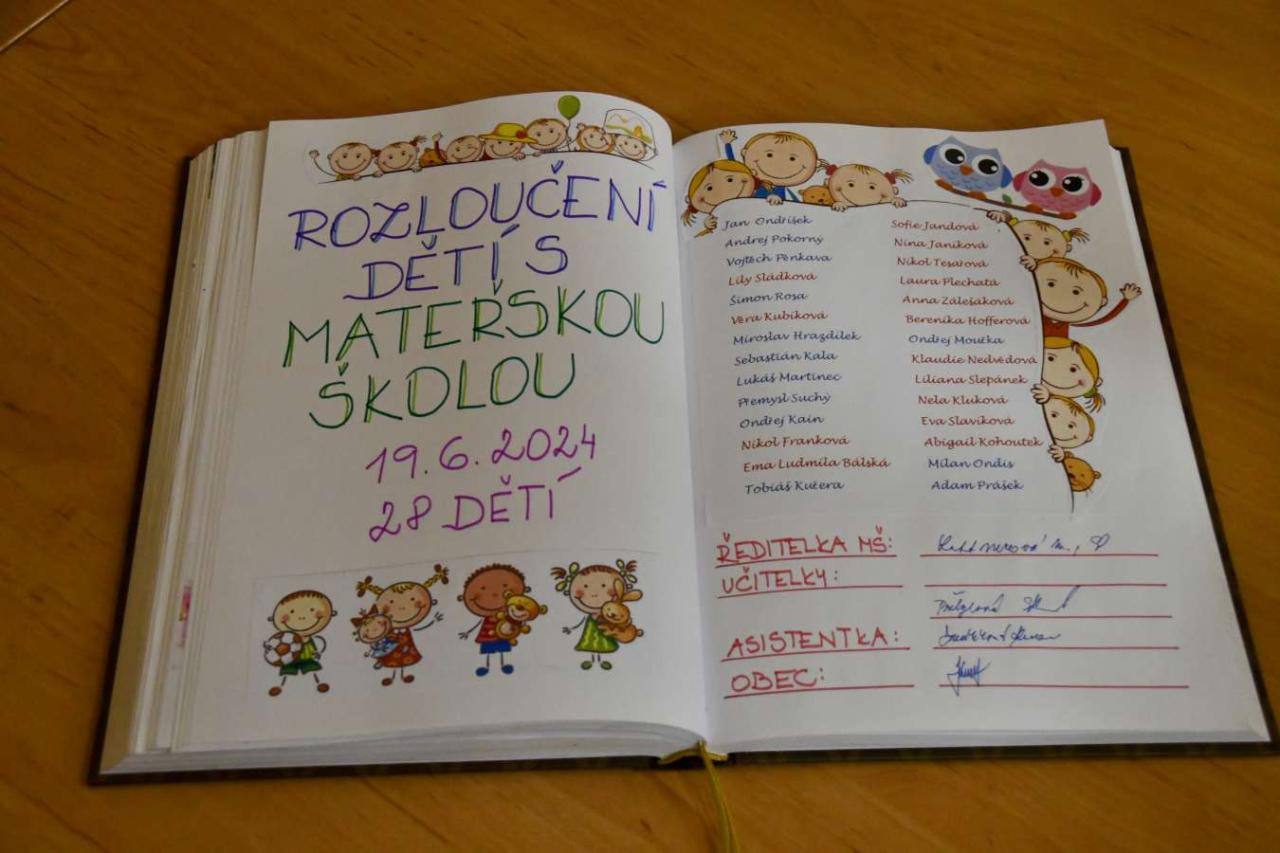 ROZLOUČENÍ
DĚTÍ S
MATEŘSKOU
ŠKOLOU
19.6.2024
28 DĚTÍ
Jan Ondříšek
Andrej Pokorný
Vojtěch Pěnkava
Lily Sládková
Šimon Rosa
Věra Kubíková
Miroslav Hrazdílek
Sebastián Kala
Lukáš Martinec
Přemysl Suchý
Ondřej Kain
Nikol Franková
Ema Ludmila Bálská
Tobiáš Kučera
Sofie Jandová
Nina Janíková
Nikol Tesařová
Laura Plechatá
Anna Zálešáková
Berenika Hofferová
Ondřej Moučka
Klaudie Nedvědová
Liliana Slepánek
Nela Kluková
Eva Slavíková
Abigail Kohoutek
Milan Ondis
Adam Prášek
ŘEDITELKA MŠ:
UČITELKY:
ASISTENTKA:
OBEC: